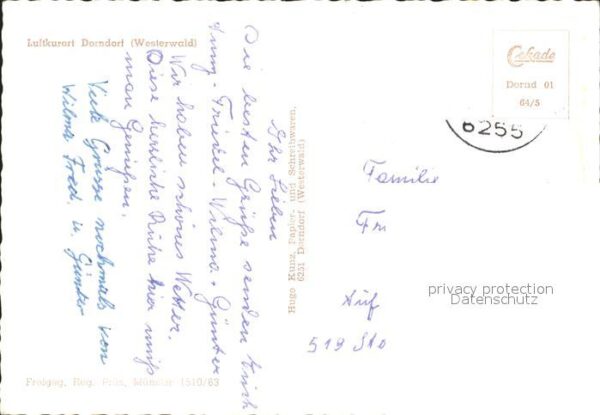 Luftkurort Dorndorf (Westerwald)
Ihr Lieben
Die besten Grüße senden Euch
Friedel - Wilma + Günter
Wir haben schönes Wetter.
Diese herrliche Ruhe hier muß
man Genießen.
Viele Grüsse nochmals von
Wilma Fred. u. Günter
Freigeg. Reg. Präs. Münster 1510/63
Hugo Kunz, Papier- und Schreibwaren,
6251 Dorndorf (Westerwald)
Cekade
Dornd 01
64/5
6255
Familie
Fr
Auf
519 Sto
privacy protection
Datenschutz